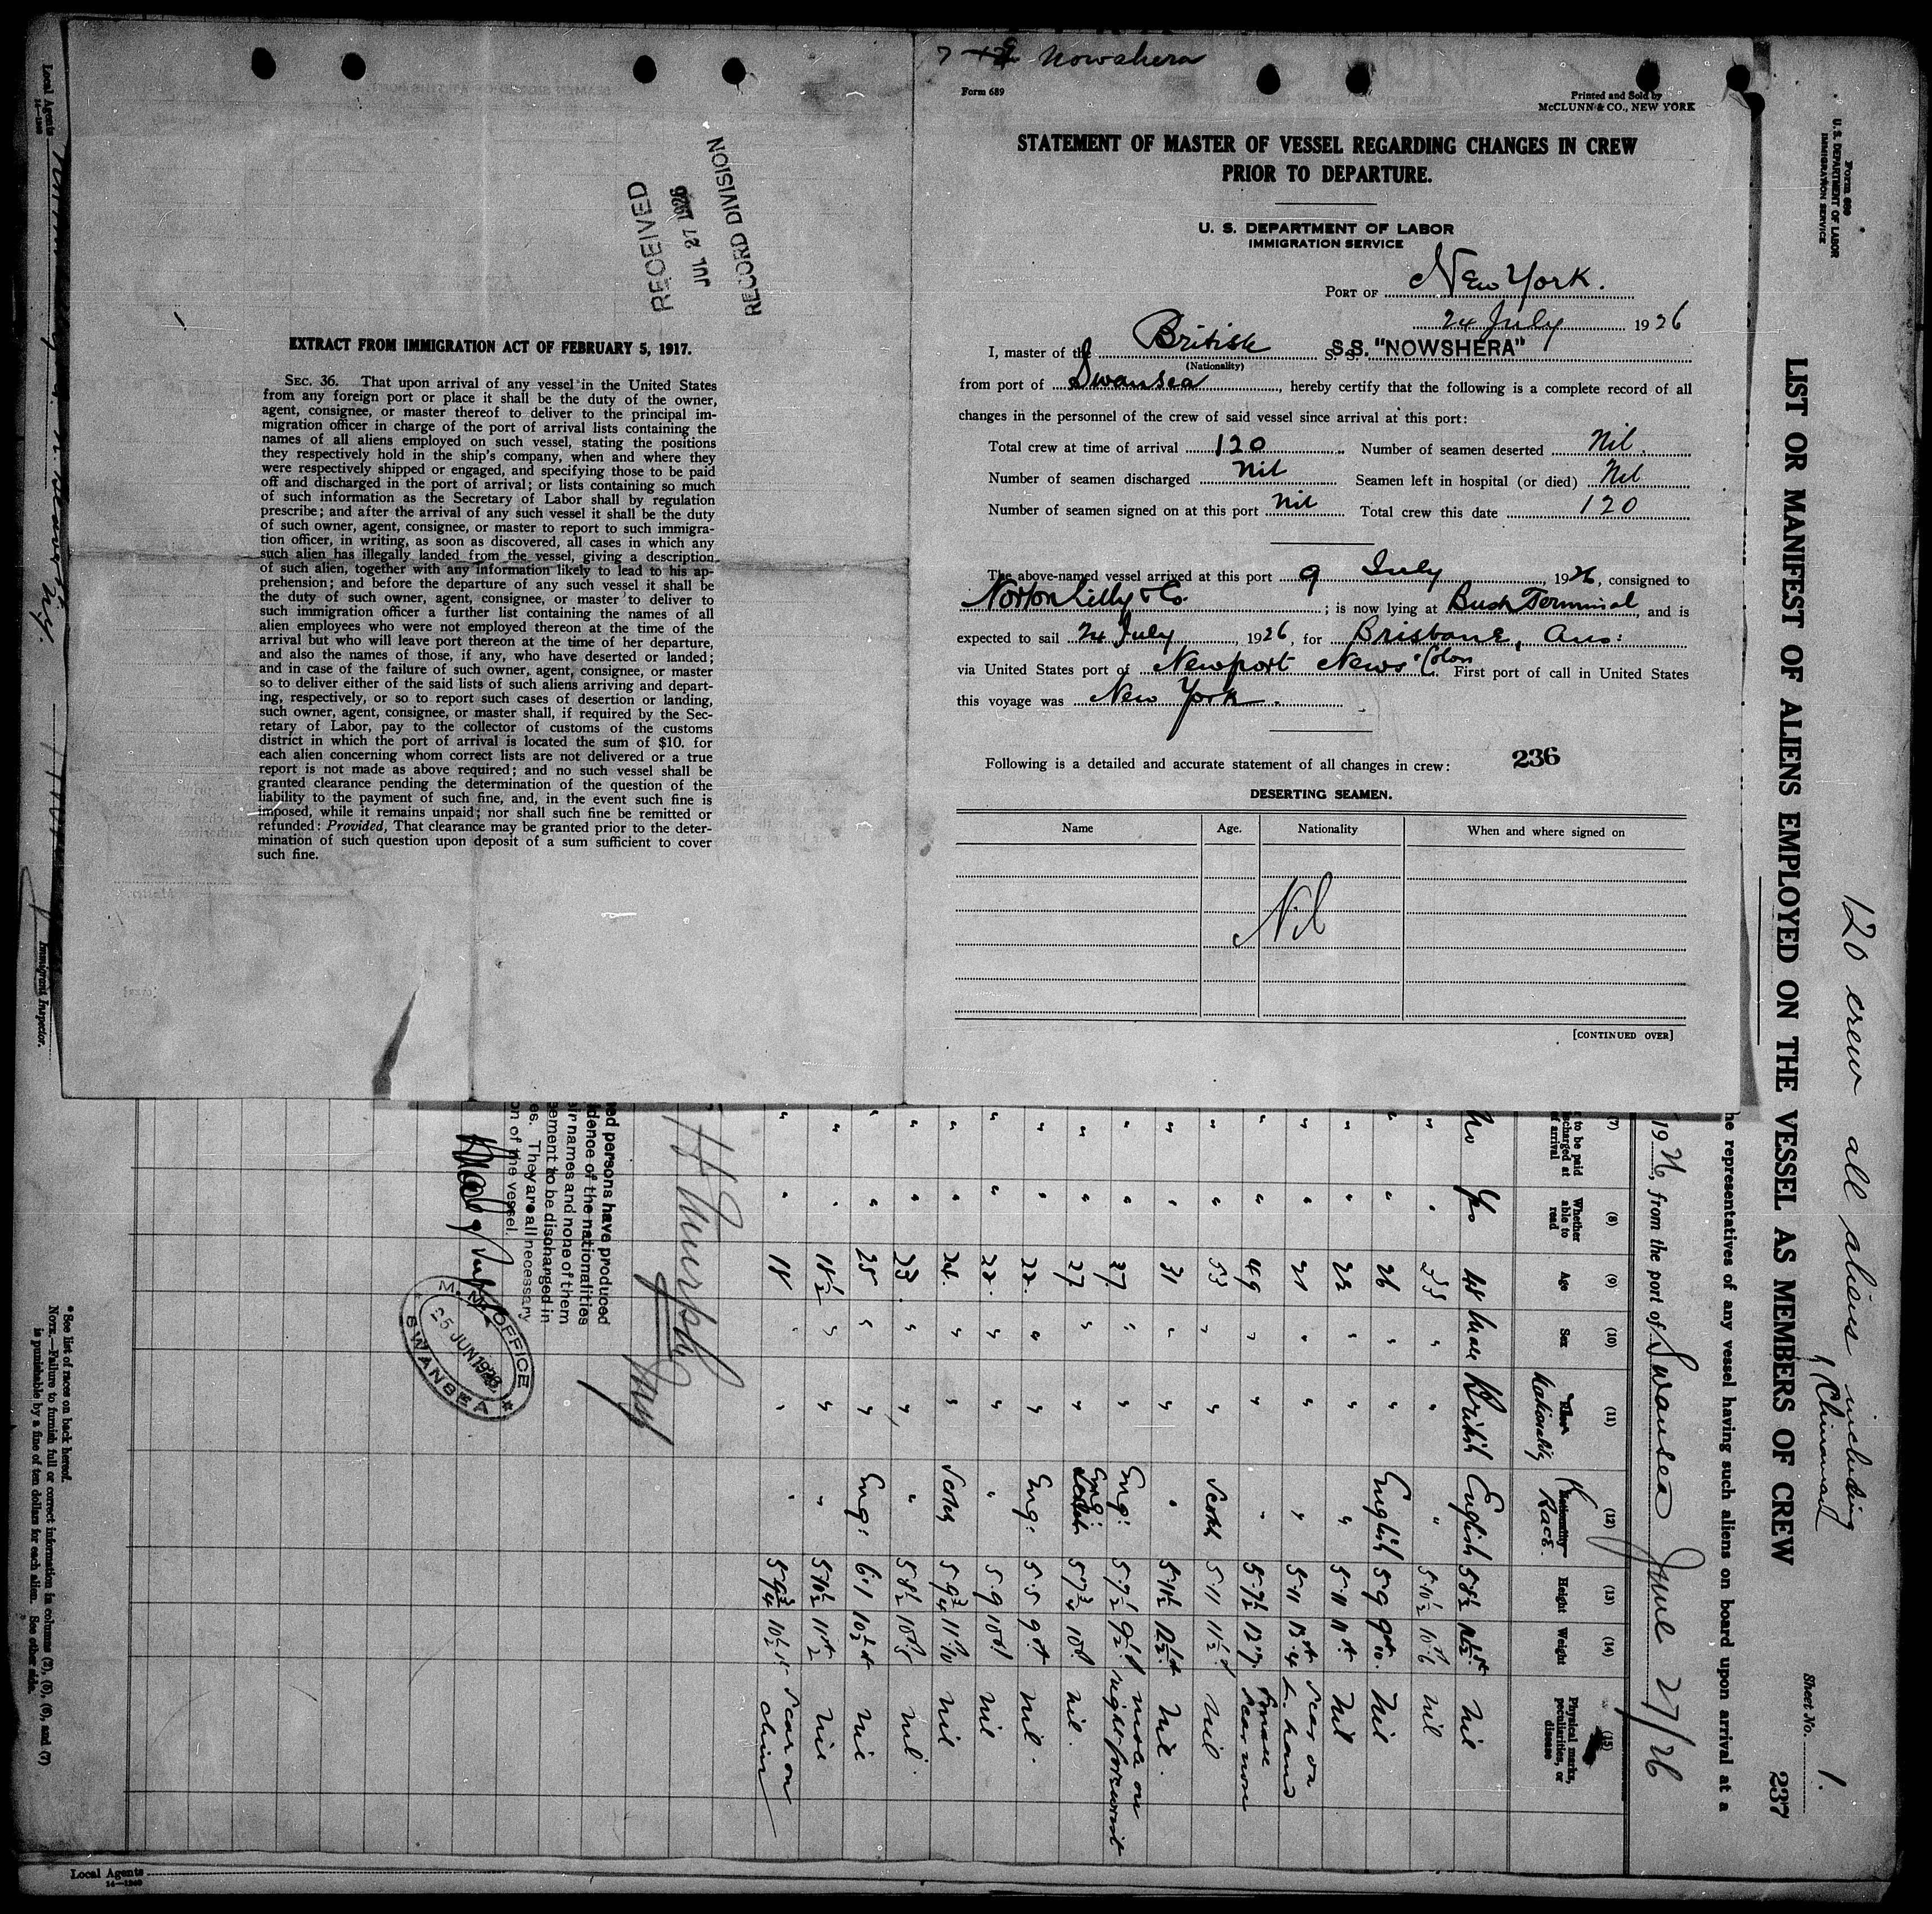 Nowshera
Form 689
Printed and Sold by
McCLUNN & CO., NEW YORK
STATEMENT OF MASTER OF VESSEL REGARDING CHANGES IN CREW
PRIOR TO DEPARTURE.
U. S. DEPARTMENT OF LABOR
IMMIGRATION SERVICE
PORT OF New York.
24 July 1926
I, master of the British S.S. "NOWSHERA"
(Nationality)
from port of Swansea, hereby certify that the following is a complete record of all
changes in the personnel of the crew of said vessel since arrival at this port:
Total crew at time of arrival 120 Number of seamen deserted Nil.
Number of seamen discharged Nil Seamen left in hospital (or died) Nil
Number of seamen signed on at this port Nil Total crew this date 120
The above-named vessel arrived at this port 9 July, 1926, consigned to
Norton Lilly & Co. ; is now lying at Bush Terminal, and is
expected to sail 24 July 1926, for Brisbane, Aus:
via United States port of Newport News & Colon. First port of call in United States
this voyage was New York.
Following is a detailed and accurate statement of all changes in crew: 236
DESERTING SEAMEN.
Name Age. Nationality When and where signed on
Nil
[CONTINUED OVER]
RECEIVED
JUL 27 1926
RECORD DIVISION
EXTRACT FROM IMMIGRATION ACT OF FEBRUARY 5, 1917.
SEC. 36. That upon arrival of any vessel in the United States
from any foreign port or place it shall be the duty of the owner,
agent, consignee, or master thereof to deliver to the principal im-
migration officer in charge of the port of arrival lists containing the
names of all aliens employed on such vessel, stating the positions
they respectively hold in the ship's company, when and where they
were respectively shipped or engaged, and specifying those to be paid
off and discharged in the port of arrival; or lists containing so much
of such information as the Secretary of Labor shall by regulation
prescribe; and after the arrival of any such vessel it shall be the duty
of such owner, agent, consignee, or master to report to such immigra-
tion officer, in writing, as soon as discovered, all cases in which any
such alien has illegally landed from the vessel, giving a description
of such alien, together with any information likely to lead to his ap-
prehension; and before the departure of any such vessel it shall be
the duty of such owner, agent, consignee, or master to deliver to
such immigration officer a further list containing the names of all
alien employees who were not employed thereon at the time of the
arrival but who will leave port thereon at the time of her departure,
and also the names of those, if any, who have deserted or landed;
and in case of the failure of such owner, agent, consignee, or master
so to deliver either of the said lists of such aliens arriving and depart-
ing, respectively, or so to report such cases of desertion or landing,
such owner, agent, consignee, or master shall, if required by the Sec-
retary of Labor, pay to the collector of customs of the customs
district in which the port of arrival is located the sum of $10. for
each alien concerning whom correct lists are not delivered or a true
report is not made as above required; and no such vessel shall be
granted clearance pending the determination of the question of the
liability to the payment of such fine, and, in the event such fine is
imposed, while it remains unpaid; nor shall such fine be remitted or
refunded: Provided, That clearance may be granted prior to the deter-
mination of such question upon deposit of a sum sufficient to cover
such fine.
Form 689
U. S. DEPARTMENT OF LABOR
IMMIGRATION SERVICE
120 crew all aliens including
1 Chinaman
Sheet No. 1.
237
LIST OR MANIFEST OF ALIENS EMPLOYED ON THE VESSEL AS MEMBERS OF CREW
he representatives of any vessel having such aliens on board upon arrival at a
1926, from the port of Swansea June 27/26
(7) (8) (9) (10) (11) (12) (13) (14) (15)
to be paid
discharged at
of arrival
Whether
able to
read
Age
Sex
Nationality
Race
Height
Weight
Physical marks,
peculiarities, or
disease
No Yes 48 Male British English 5.8½ Nil
" " " " " 5.10½ Nil
" " 26 " " English 5.9 Nil
" " " " " 5.11 Nil
" " 21 " " " 5.11 Scar on L. hand
" " 49 " " " 5.9½ Scar nose
" " 53 " " Scotch 5.11 Nil
" " 31 " " " 5.11½ Nil.
" " 27 " " Eng: 5.7½ mole on right
" " 27 " " Eng: 5.7¾ Nil.
" " 22 " " Eng: 5.5 Nil.
" " 22 " " " 5.9 Nil
" " 24 " " Scotch 5.9¾ Nil
" " 23 " " " 5.8½ Nil.
" " 25 " " Eng: 6.1 Nil
" " 18½ " " " 5.10½ Nil
" " 18 " " " 5.9¾ Scar on chin
H Murphy
ned persons have produced
idence of the nationalities
ir names and none of them
ement to be discharged in
es. They are all necessary
on of the vessel.
M.M. OFFICE
25 JUN 1926
SWANSEA
* See list of races on back hereof.
NOTE.—Failure to furnish full or correct information in columns (2), (5), (6), and (7)
is punishable by a fine of ten dollars for each alien. See other side.
Local Agents
14—1240
Immigrant Inspector.
Local Agents
14—1240